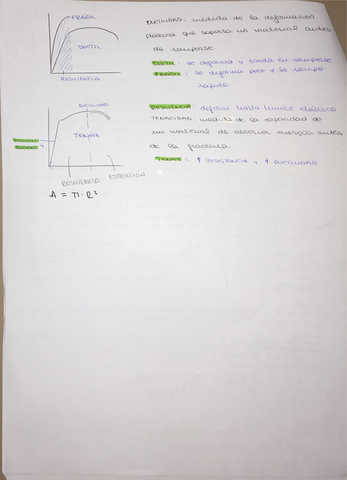 FRAGIL
DUCTIL
RESILIENCIA
DUCTILIDAD: medida de la deformación
plástica que soporta un material antes
de romperse.
Dúctil: se deforma y tarda en romperse
Frágil: se deforma poco y se rompe
rápido
DUCTILIDAD
TENAZ
RESILIENCIA
A = π · R²
Resiliencia deform. hasta límite elástico
TENACIDAD: medida de la capacidad de
un material de absorber energía antes
de la fractura.
Tenaz: ↑ RESISTENCIA y ↑ DUCTILIDAD